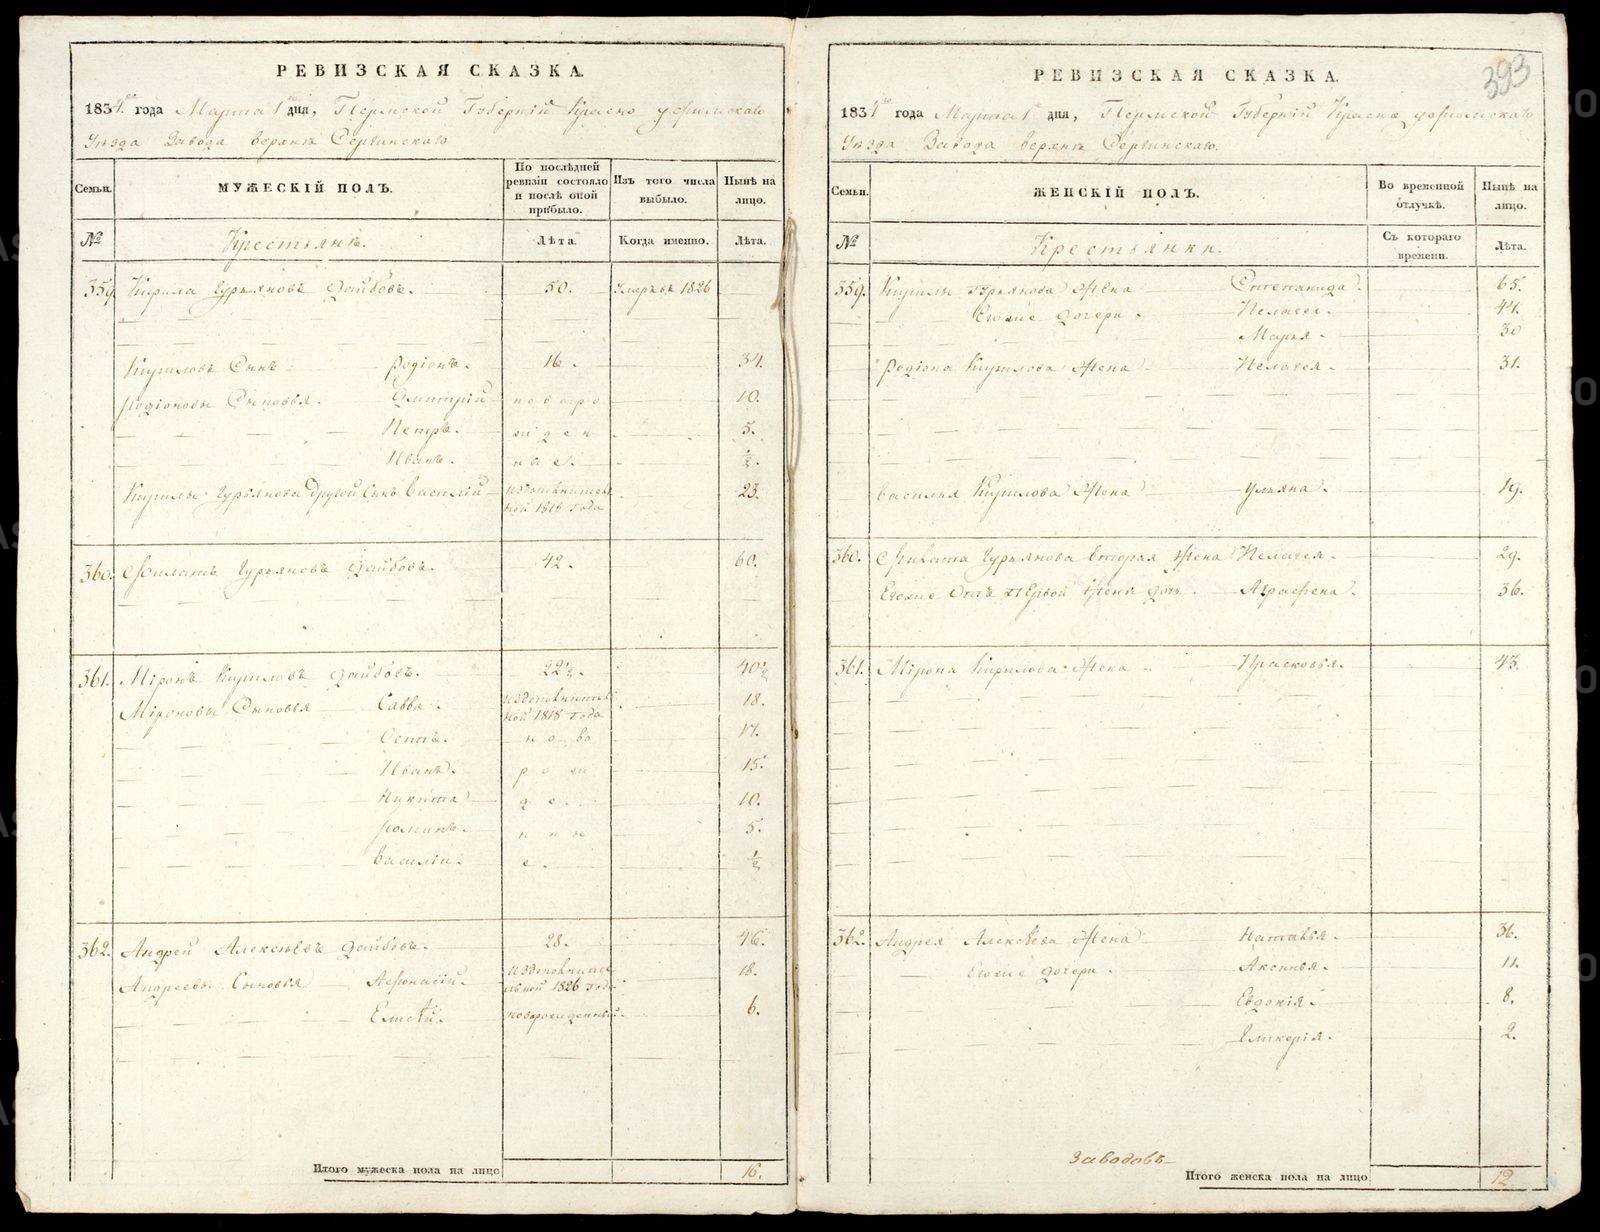 РЕВИЗСКАЯ СКАЗКА.
1834го года Марта 1 дня, Пермской Губерніи Красно уфимскаго
Уезда Завода верхне Сергинскаго
Семьи. МУЖЕСКІЙ ПОЛЪ. По послѣдней ревизіи состояло и послѣ оной прибыло. Изъ того числа выбыло. Нынѣ на лицо.
№ Крестьяне. Лѣта. Когда именно. Лѣта.
359. Кирила Гурьяновъ 50. Умеръ в 1826
Кириловъ Сынъ Родіонъ. 16. 34.
Родіоновы Сыновья. Дмитрій новоро 10.
Петръ. жден 5.
Иванъ. ные. ½.
Кирилы Гурьянова другой Сынъ Василій 23.
ной 1818 года
360. Филатъ Гурьяновъ 42. 60.
361. Міронъ Кириловъ 22½. 40½
Міроновы Сыновья Савва. 18.
ной 1818 года
ново 17.
Иванъ. рож 15.
Никита де 10.
нны 5.
Василій. е. ½
362. Андрей Алексѣевъ 28. 46.
Андреевы Сыновья Афонасій. 18.
льной 1826 года
Елисѣй. новорожденный. 6.
Итого мужеска пола на лицо 16.
393
РЕВИЗСКАЯ СКАЗКА.
1834го года Марта 1 дня, Пермской Губерніи Красно уфимскаго
Уезда Завода верхне Сергинскаго.
Семьи. ЖЕНСКІЙ ПОЛЪ. Во временной отлучкѣ. Нынѣ на лицо.
№ Крестьянки. Съ котораго времени. Лѣта.
359. Кирилы Гурьянова Жена Степанида. 65.
Егоже дочери. Пелагея. 44.
Марья. 30
Родіона Кирилова Жена Пелагея. 31.
Василия Кирилова Жена Ульяна. 19.
360. Гурьянова вторая Жена Пелагея. 29.
Егоже Отъ первой Жены дочь. Аграфена. 36.
361. Мірона Кирилова Жена Прасковья. 43.
362. Андрея Алексѣева Жена Наталья. 36.
Егоже дочери. Аксинья. 11.
Евдокія. 8.
2.
Заводовъ
Итого женска пола на лицо 12.